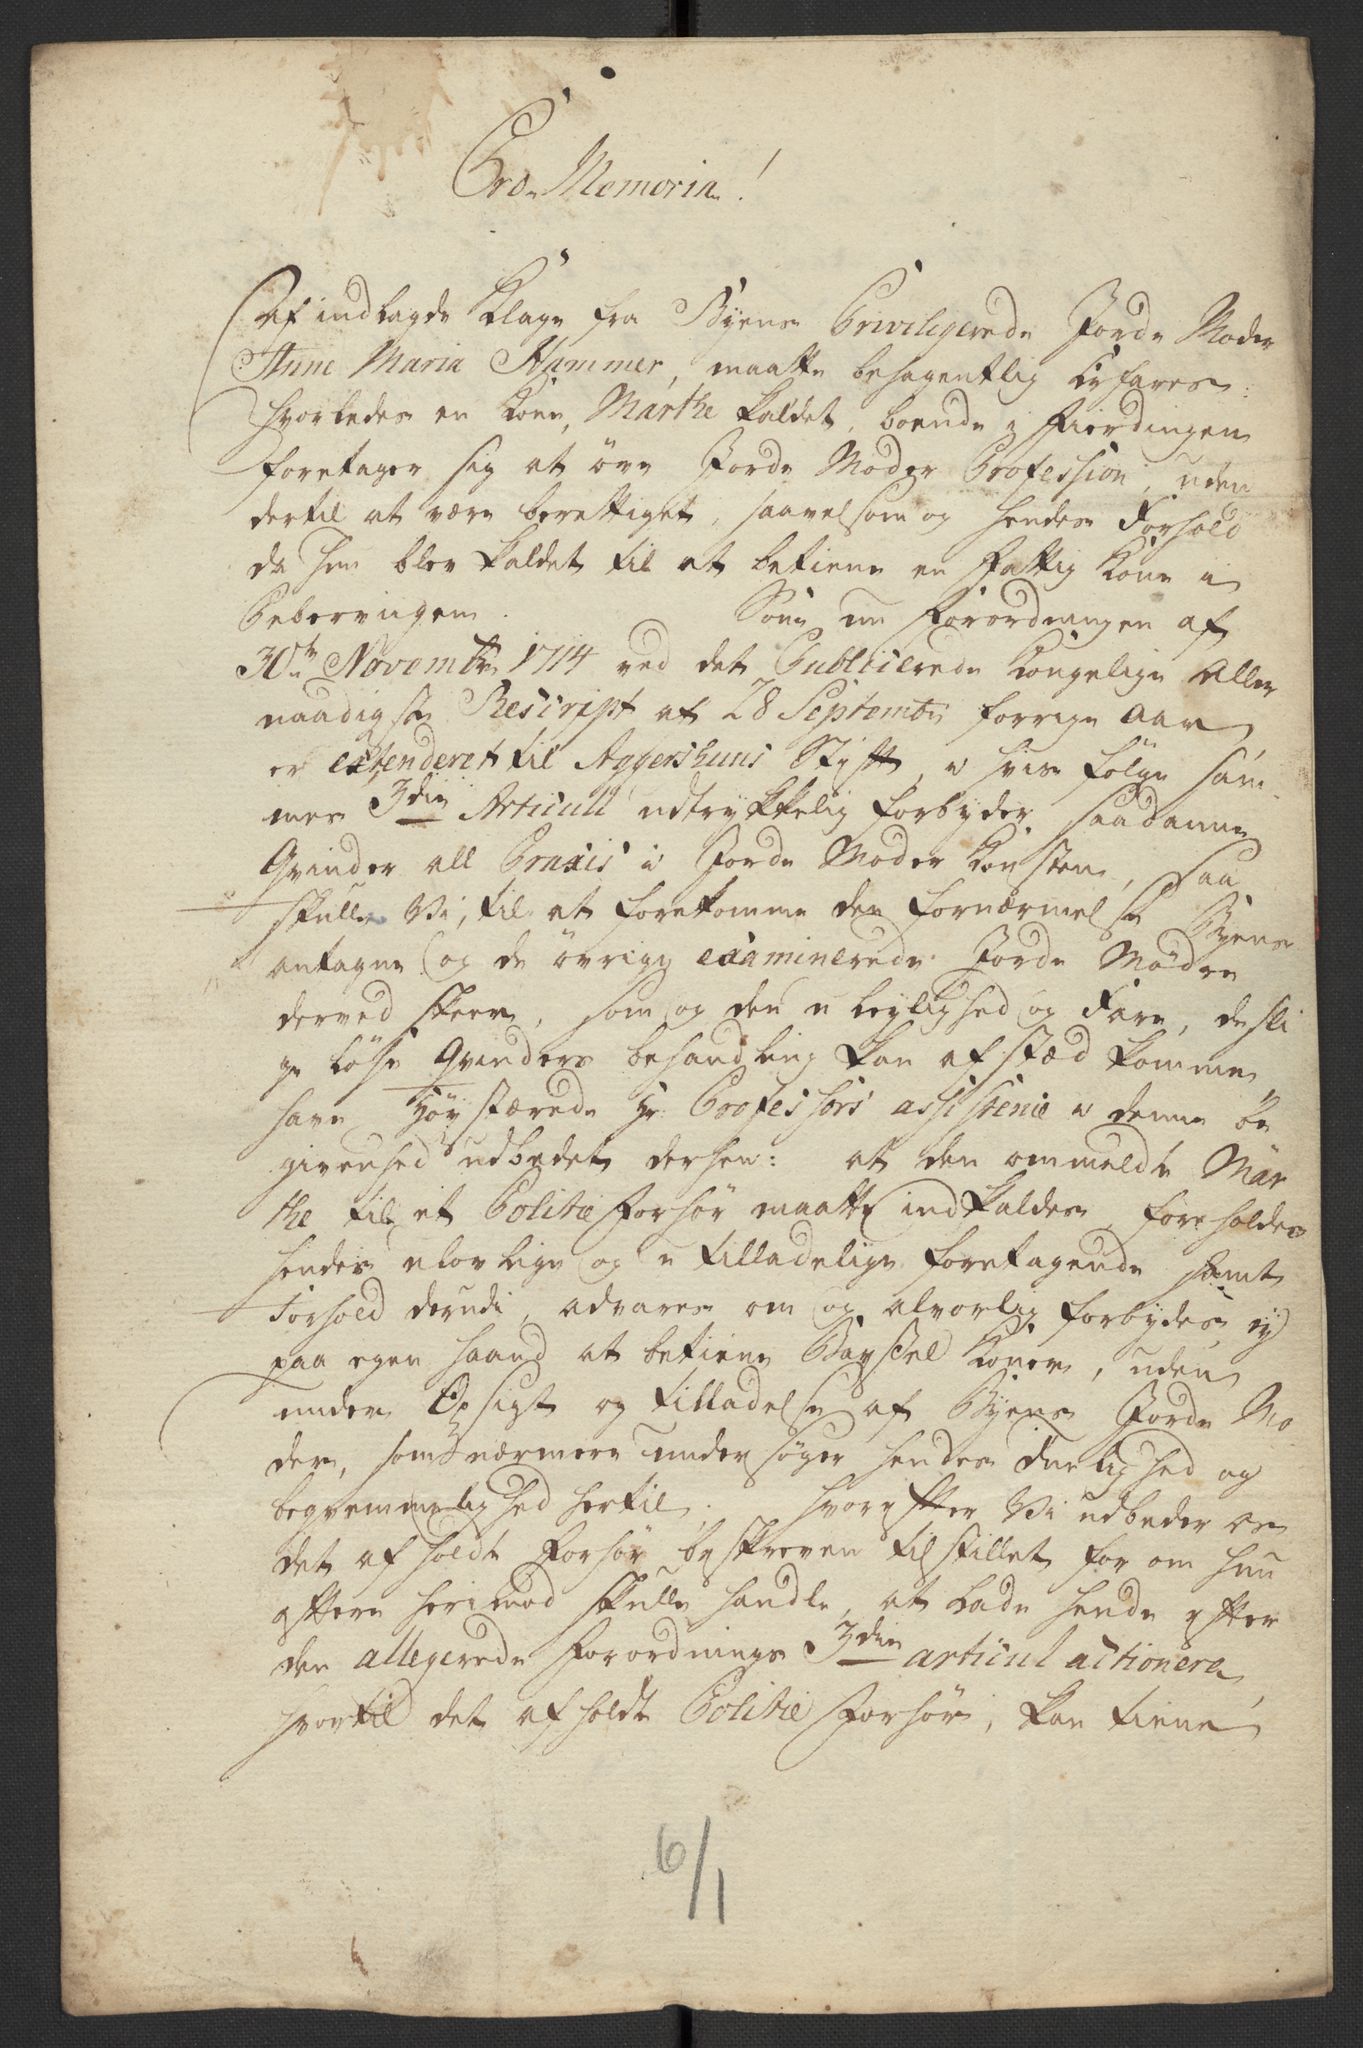 Pro Memoria!
Af indlagde Klage fra Byens Privilegerede Jorde Moder
Anne Maria Hammer, maatte behagentlig erfares
hvorledes en Kone, Marthe kaldet, boende i Fierdingen
foretager sig at øve Jorde Moder Profession, uden
dertil at være berettiget, saavelsom og hendes Forhold
da hun blev kaldet til at betiene en fattig Kone i
Pebervigen. Som nu Forordningen af
30te Novembr 1714 ved det Publicerede Kongelige Aller
naadigste Rescript af 28 Septembr forrige Aar
er extenderet til Aggershuus Stift, i hvis følge sam
mes 3die Articul udtrykkelig forbyder saadanne
Qvinder all Praxis i Jorde Moder Konsten, saa
skulle Vi, til at forekomme den fornærmelse Byens
antagne og de øvrige examinerede Jorde Mødre
derved skeer, som og den u leylighed og Fare, desli
ge løse Qvinders behandling kan af stæd komme,
have Høystærede Hr. Professors assistence i denne be
givenhed udbedet derhen: at den ommeldte Mar
the til et Politie Forhør maatte indkaldes, foreholdes
hendes ulovlige og u tilladelige foretagende samt
Forhold derudi, advares om og alvorlig forbydes, ey
paa egen haand at betiene Barsel Koner, uden
under Opsigt og tilladelse af Byens Jorde Mo
der, som nærmere undersøger hendes Duelighed og
beqvemmelighed hertil. Hvorefter Vi udbeder os
det afholdte Forhør beskreven tilstillet for om hun
oftere herimod skulle handle, at lade hende efter
den allegerede Forordnings 3die articul actionere,
hvortil det afholdte Politie Forhør, kan tiene
6/1